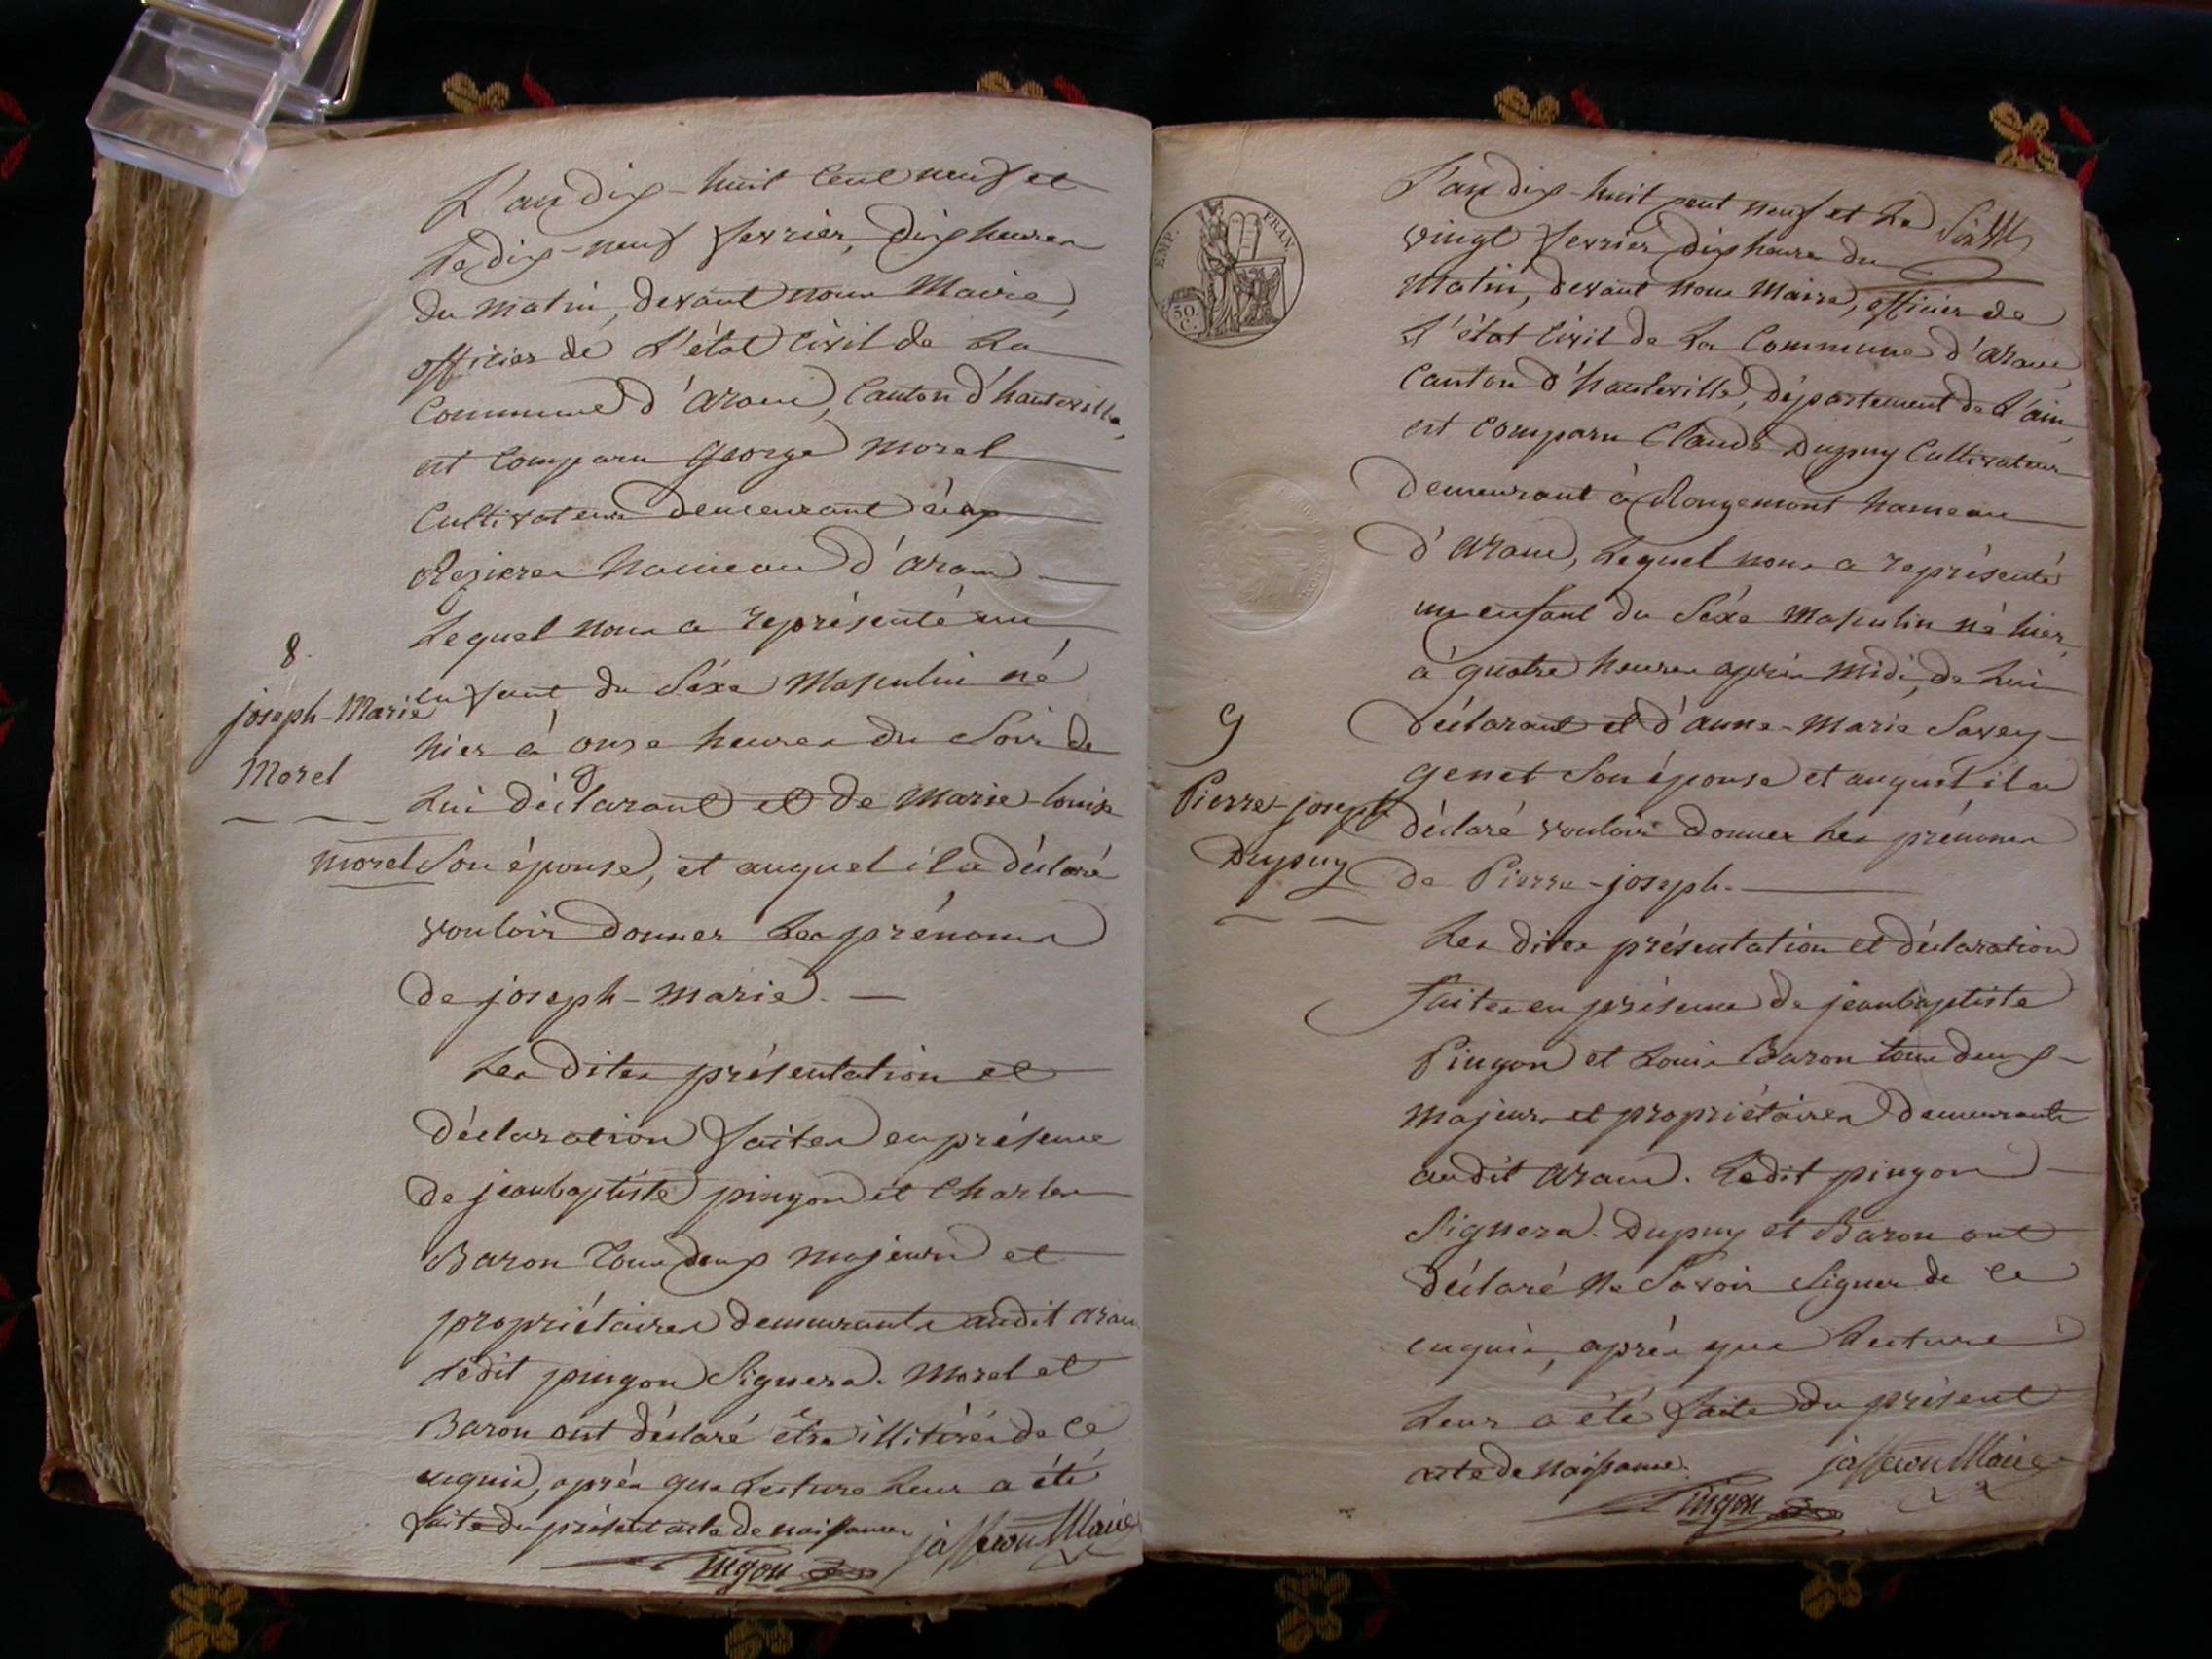 L'an dix-huit cent neuf et
le dix-neuf fevrier, dix heures
du matin, devant nous Maire,
officier de l'état civil de la
Commune d'aranc, canton d'hauteville,
est comparu george morel
cultivateur demeurant aux
hameau d'aranc
lequel nous a représenté un
enfant du séxe masculin né
hier à onze heures du soir de
lui déclarant et de marie-louise
morel son épouse, et auquel il a déclaré
vouloir donner les prénoms
de joseph-marie. —
les dites présentation et
déclaration faites en présence
de jeanbaptiste pingon et Charles
Baron tous deux majeurs et
propriétaires demeurants audit aranc
ledit pingon signera. Morel et
Baron ont déclaré être illitérés de ce
enquis, après que lecture leur a été
faite du présent acte de naissance
jasseron Maire
Pingon
8.
joseph-Marie
Morel
EMP. FRAN.
50
C.
L'an dix-huit cent neuf et le
vingt fevrier dix heures du
matin, devant nous Maire, officier de
l'état civil de la Commune d'aranc,
canton d'hauteville, département de l'ain,
est comparu Claude Dupuy cultivateur
demeurant à Rougemont hameau
d'aranc, lequel nous a représenté
un enfant du séxe masculin né hier
à quatre heures après midi, de lui
déclarant et d'anne-Marie Savey-
genet son épouse et auquel il a
déclaré vouloir donner les prénoms
de Pierre-joseph.
les dites présentation et déclaration
faites en présence de jeanbaptiste
Pingon et Louis Baron tous deux
majeurs et propriétaires demeurants
audit aranc. ledit pingon
signera. Dupuy et Baron ont
déclaré ne savoir signer de ce
enquis, après que lecture
leur a été faite du présent
acte de naissance.
jasseron Maire
Pingon
9
Pierre-joseph
Dupuy